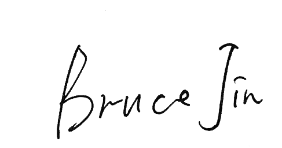 Bruce Jin